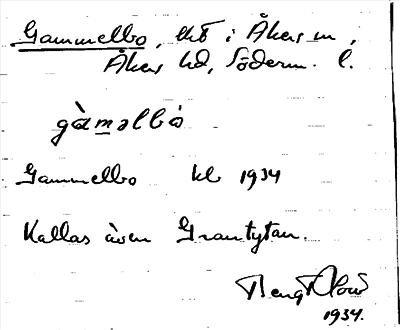 Gammelbo, tkt i Åkers sn,
Åkers hd, Söderm. l.
gàmalbò
Gammelbo kl 1934
Kallas även Grantytan.
1934.